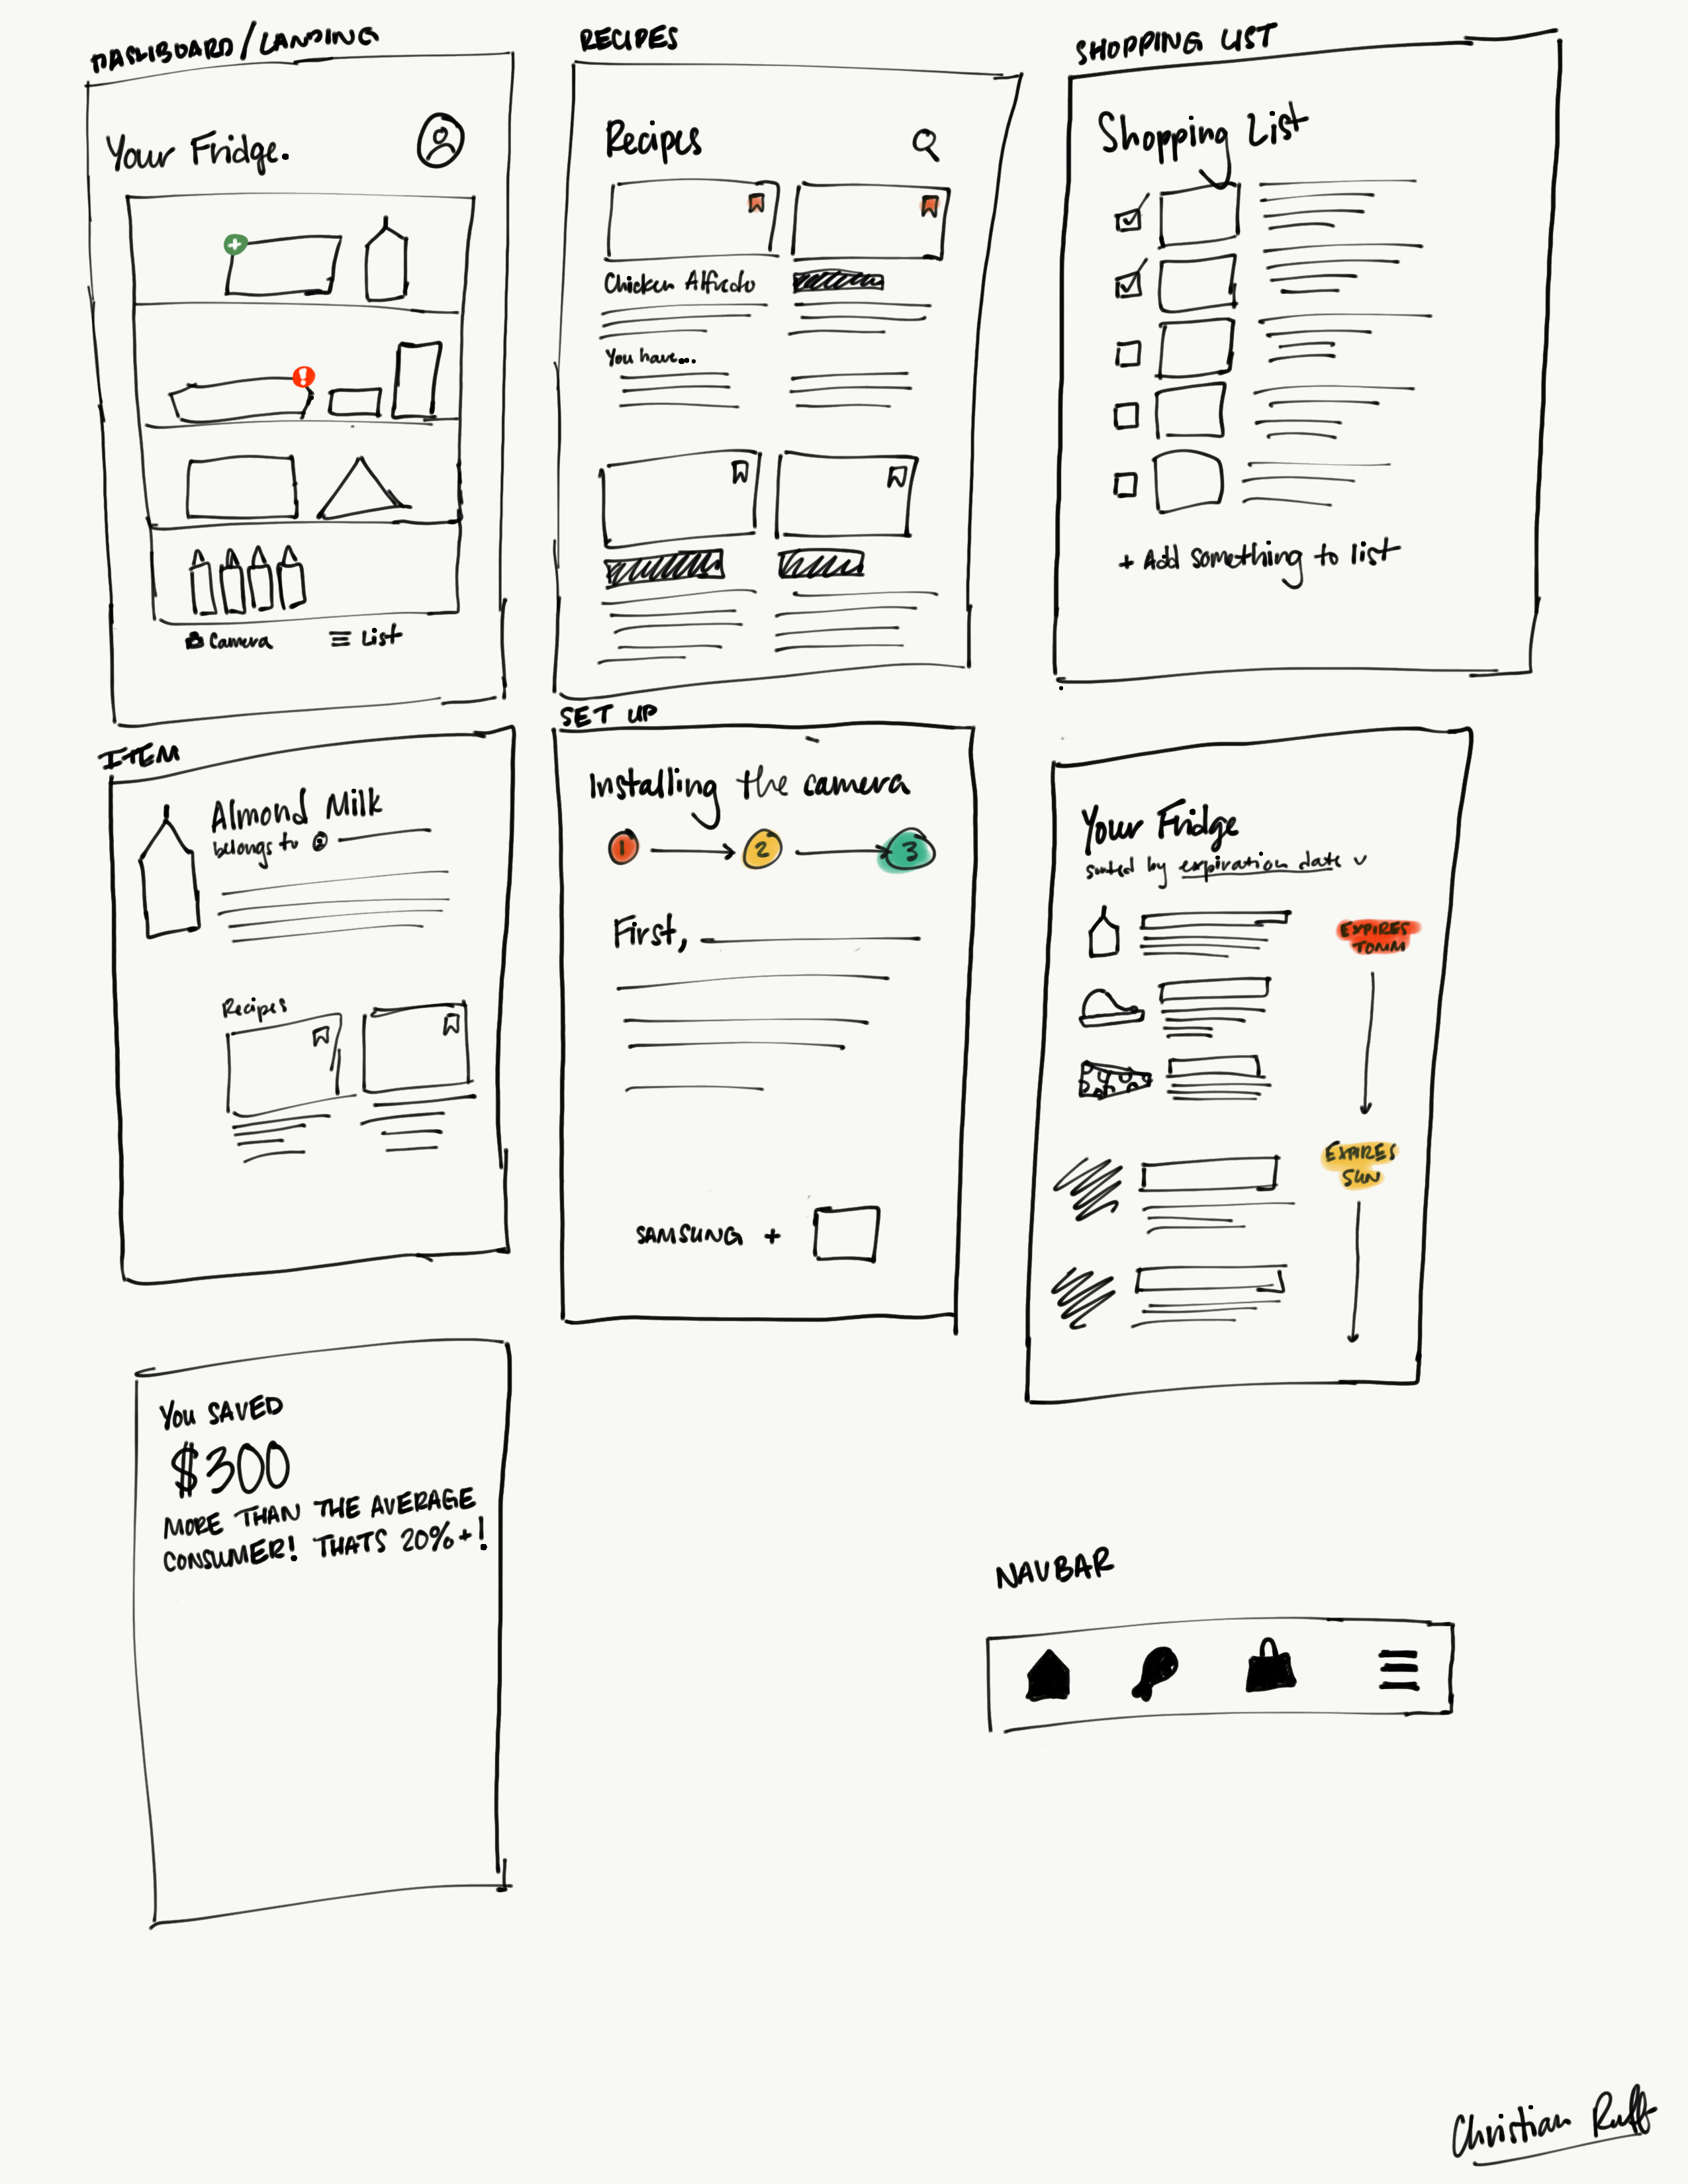 DASHBOARD/LANDING
Your Fridge.
Camera
List
RECIPES
Recipes
Chicken Alfredo
You have...
SHOPPING LIST
Shopping List
+ Add something to list
ITEM
Almond Milk
belongs to
Recipes
SET UP
Installing the camera
1 2 3
First,
SAMSUNG +
Your Fridge
sorted by expiration date
EXPIRES
TOMM
EXPIRES
SUN
YOU SAVED
$300
MORE THAN THE AVERAGE
CONSUMER! THATS 20%+!
NAVBAR
Christian Ruff